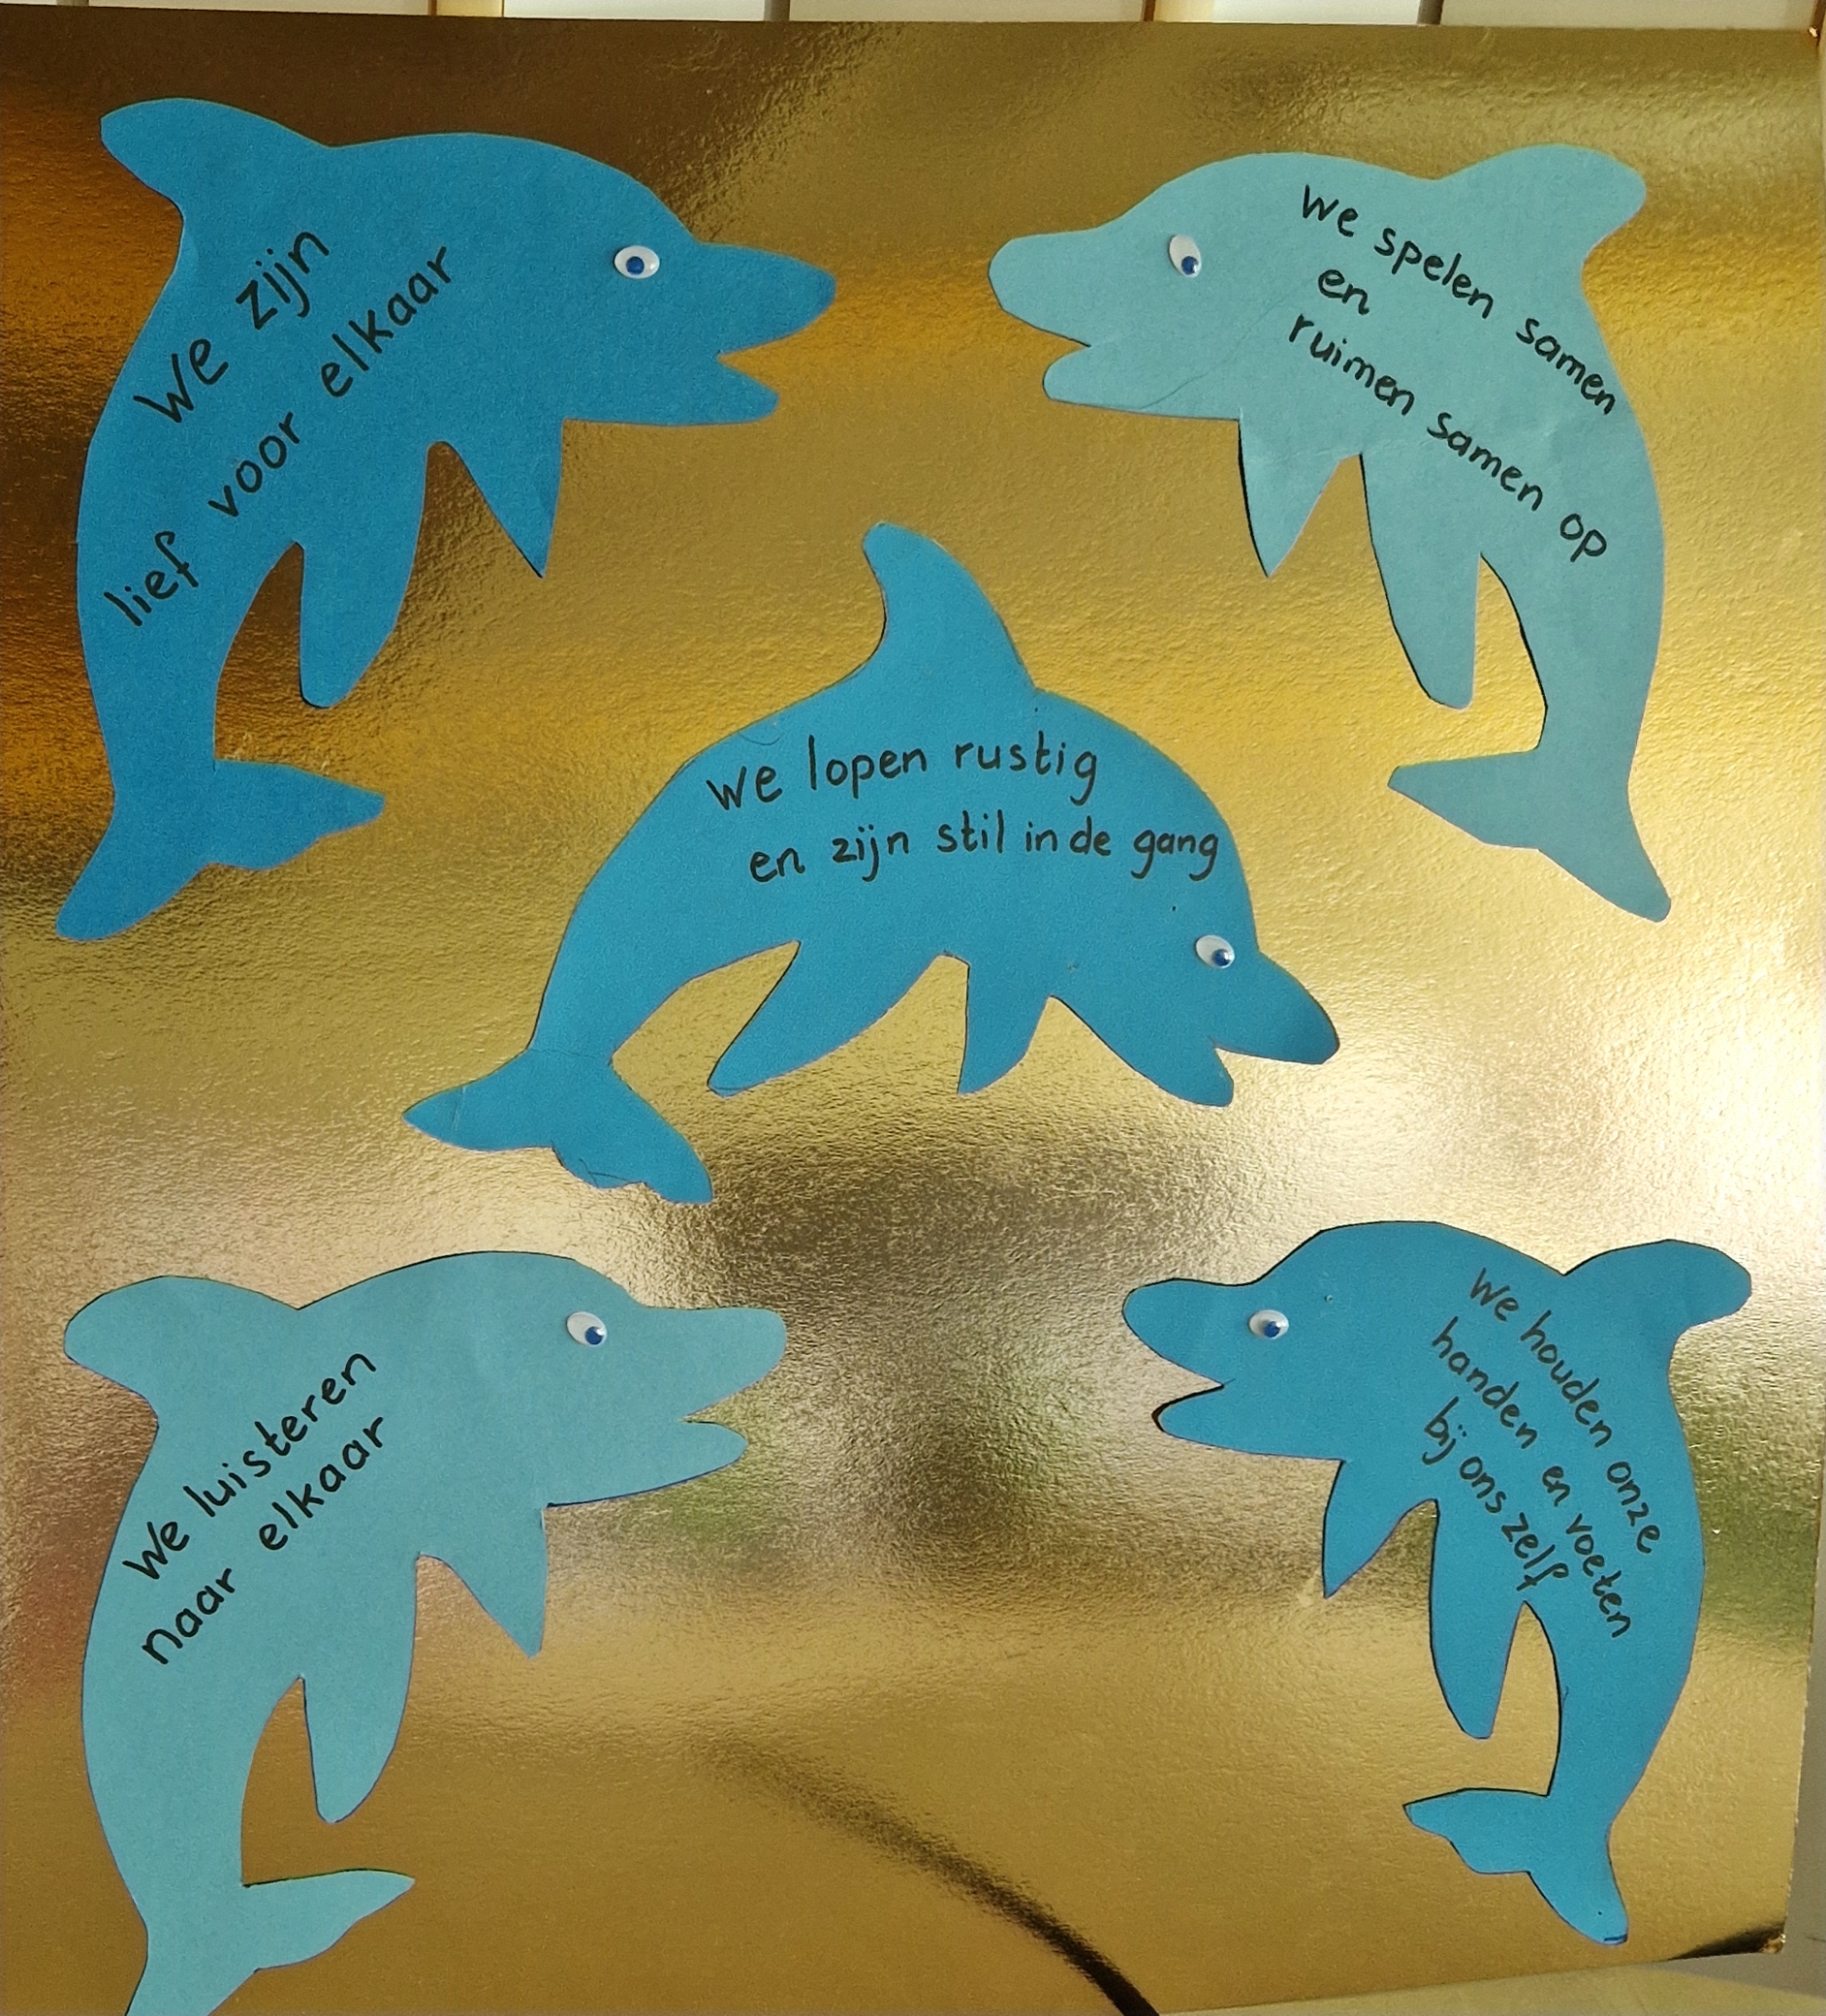 We zijn
lief voor elkaar
We spelen samen
en
ruimen samen op
We lopen rustig
en zijn stil in de gang
We luisteren
naar elkaar
We houden onze
handen en voeten
bij ons zelf